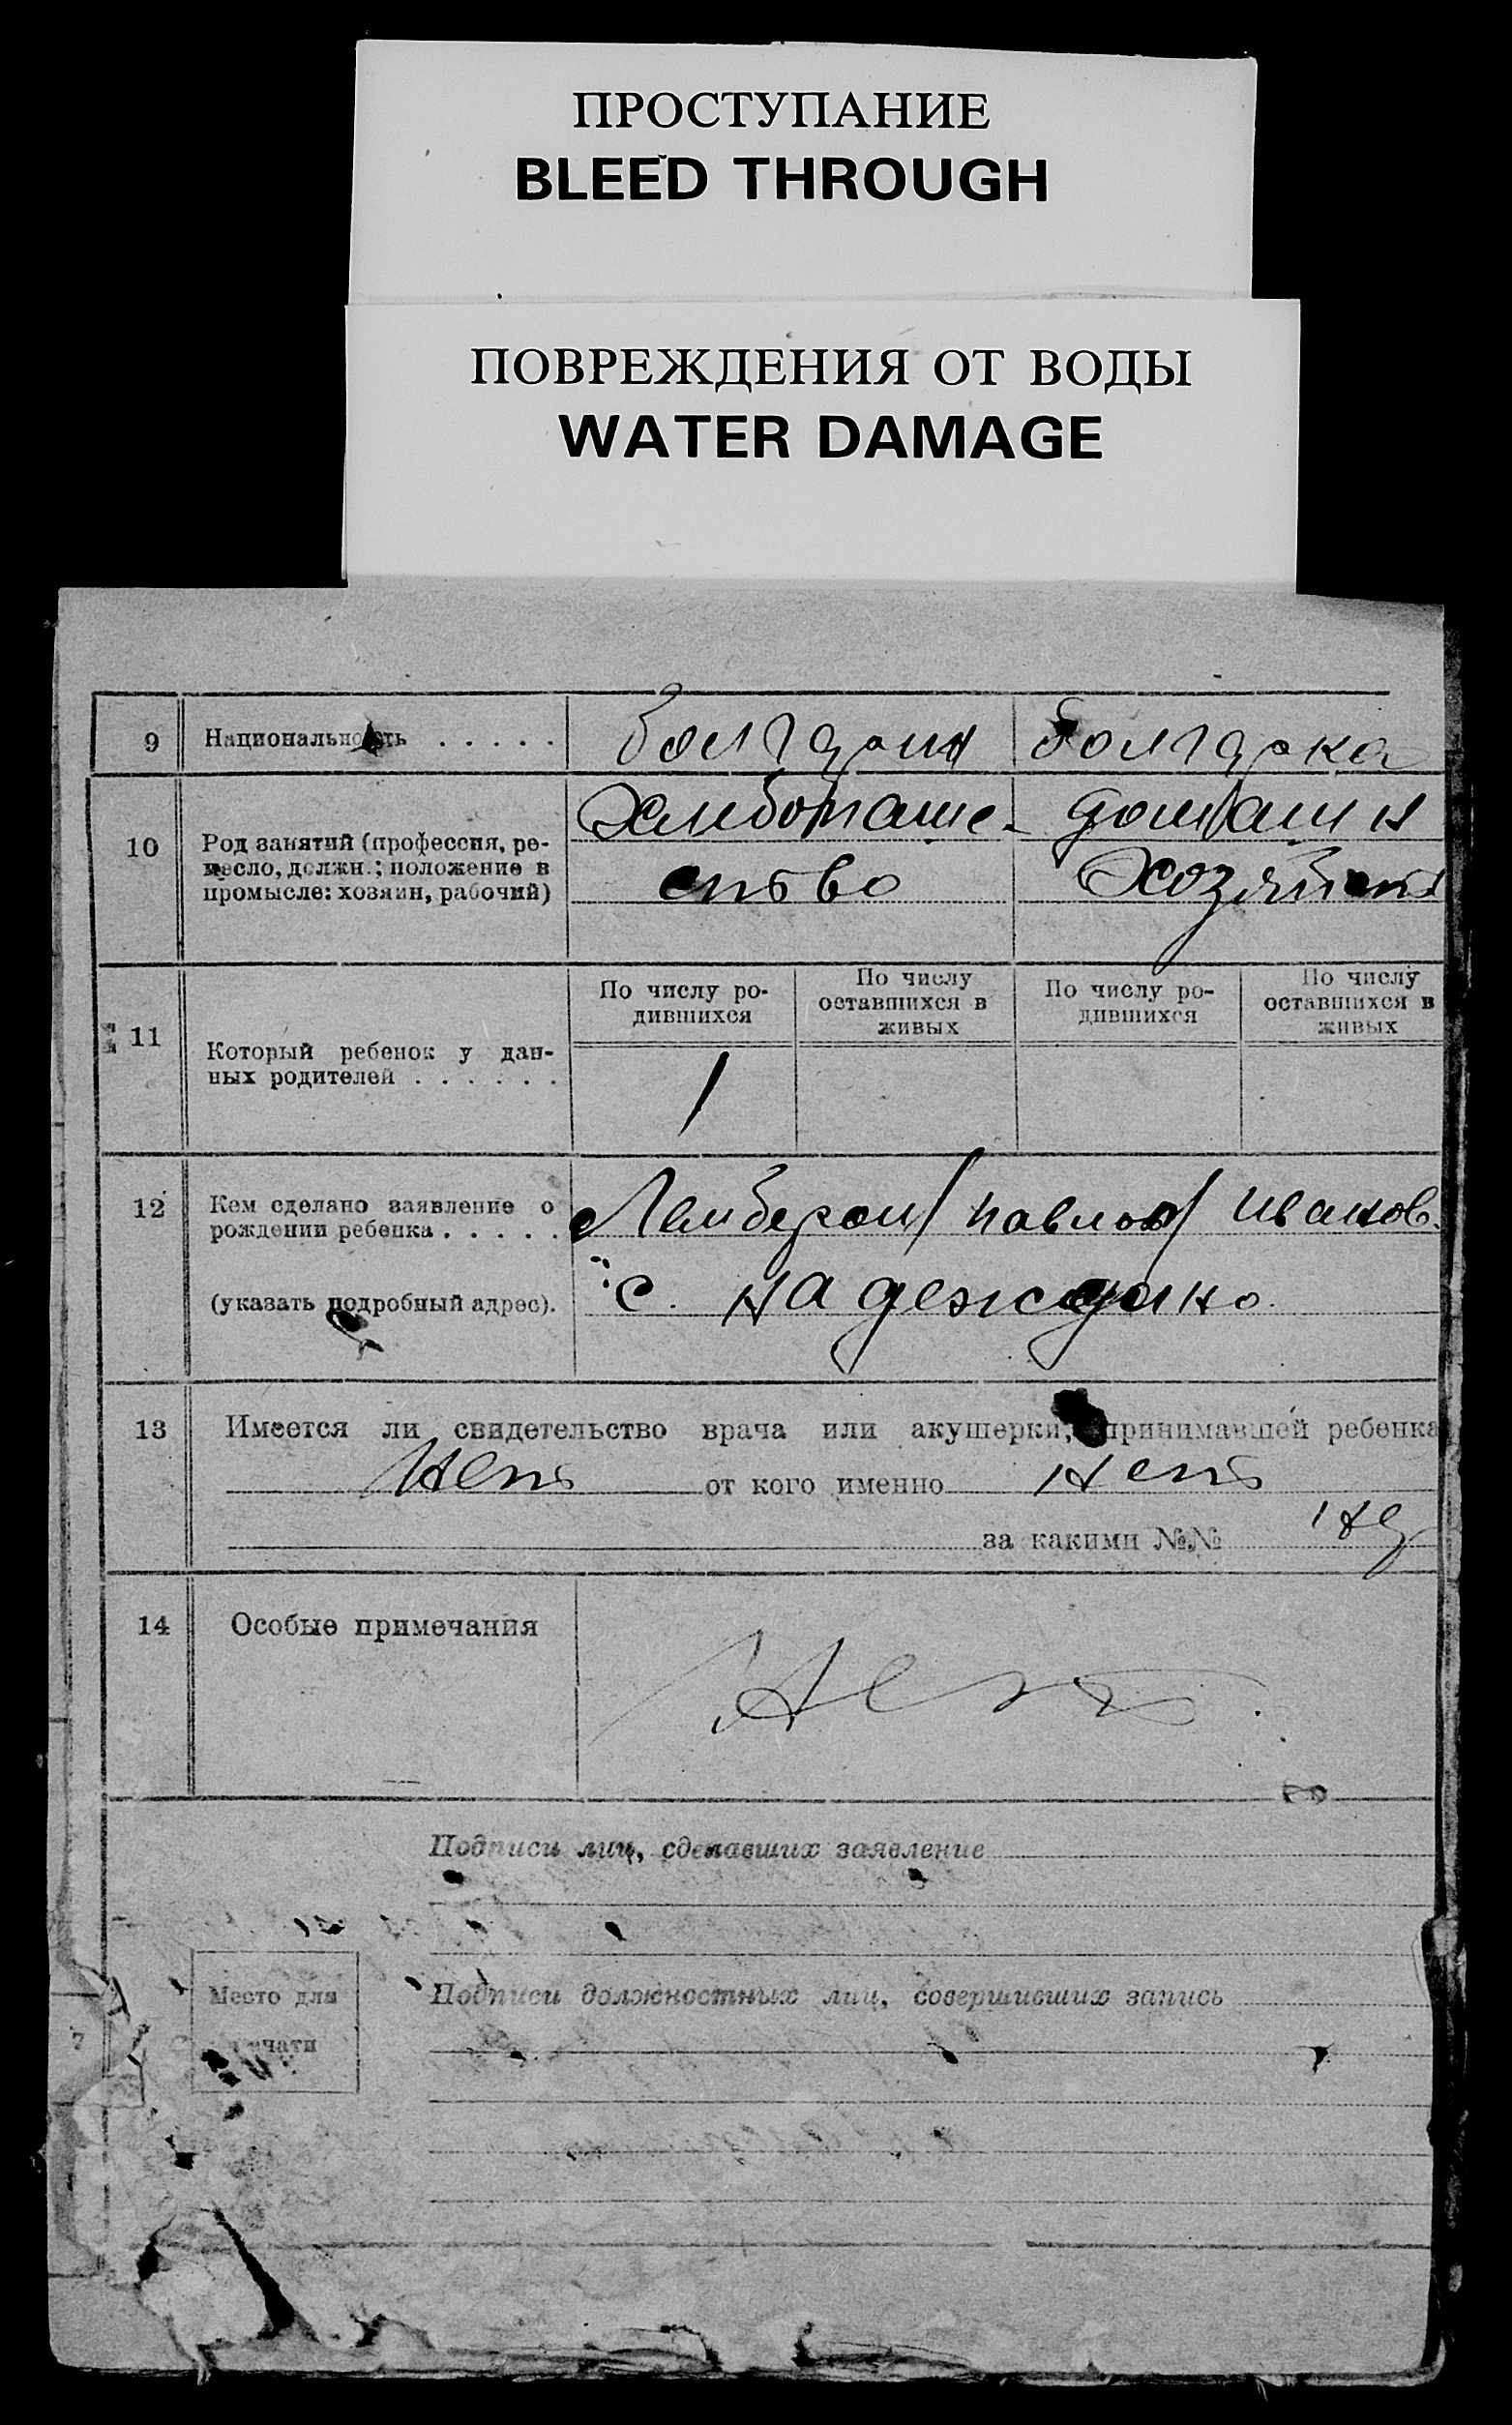 ПРОСТУПАНИЕ
BLEED THROUGH
ПОВРЕЖДЕНИЯ ОТ ВОДЫ
WATER DAMAGE
9 Национальность . . . . . болгарин болгарка
10 Род занятий (профессия, ре-
месло, должн.; положение в
промысле: хозяин, рабочий)
Хлибопаше- домашн
ство Хозяйств
11 Который ребенок у дан-
ных родителей . . . . . .
По числу ро-
дившихся
По числу
оставшихся в
живых
По числу ро-
дившихся
По числу
оставшихся в
живых
1
12 Кем сделано заявление о
рождении ребенка . . . . .
(указать подробный адрес).
павлов иванов.
с. надеждино.
13 Имеется ли свидетельство врача или акушерки, принимавшей ребенка
Нет от кого именно нет
за какими №№
14 Особые примечания
Нет.
Подписи лиц, сделавших заявление
Место для
печати
Подписи должностных лиц, совершивших запись
7